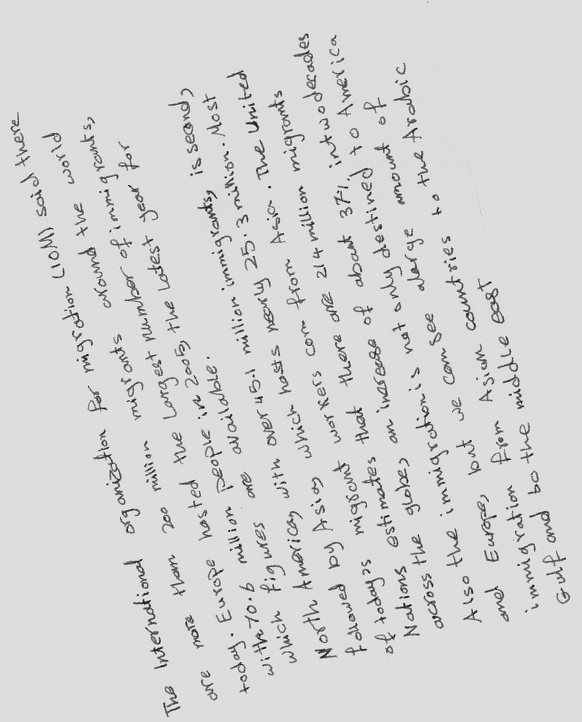 The International organization for migration (IOM) said there
are more than 200 million migrants around the world
today. Europe hosted the Largest number of immigrants,
with 70.6 million People in 2005, the Latest year for
which figures are available.
North America, with over 45.1 million immigrants, is second,
followed by Asia, which hosts nearly 25.3 million. Most
of today's migrant workers com from Asia. The United
Nations estimates that there are 214 million migrants
across the globe, an increase of about 37% in two decades
Also the immigration is not only destined to America
and Europe, but we can see alarge amount of
immigration from Asian countries to the Arabic
Gulf and bo the middle east